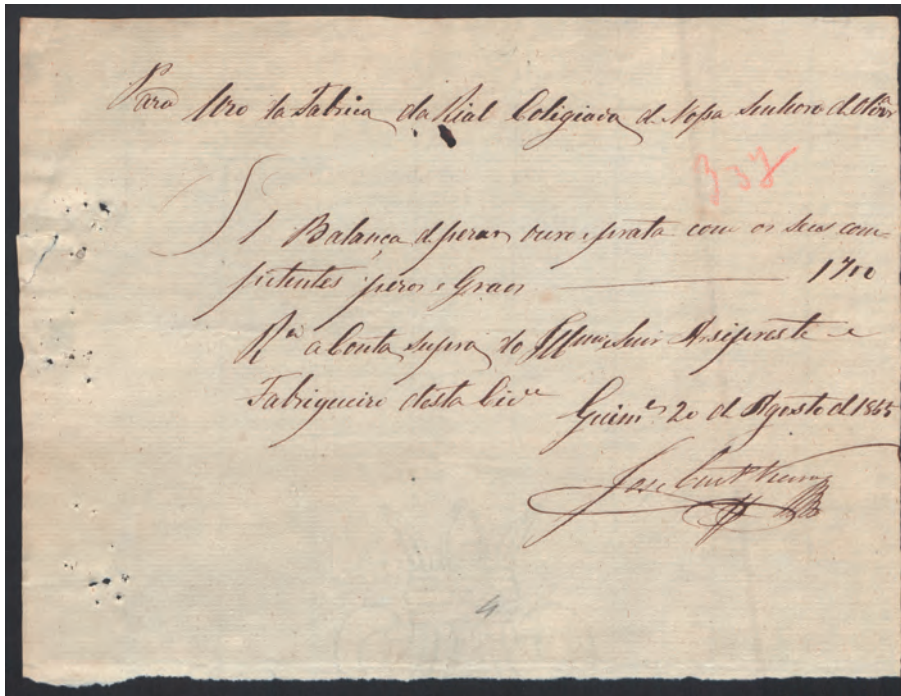 Para Uzo da Fabrica da Rial Coligiada de Nossa Senhora de Olivra
337
1 Balança de pezar ouro e prata com os seus com-
pitentes pezos e Graos — 1700
Rm a Conta supra do Illmo Snir Arsipreste e
Fabriqueiro desta Cide
Guimes 20 de Agosto de 1865
Jose
4